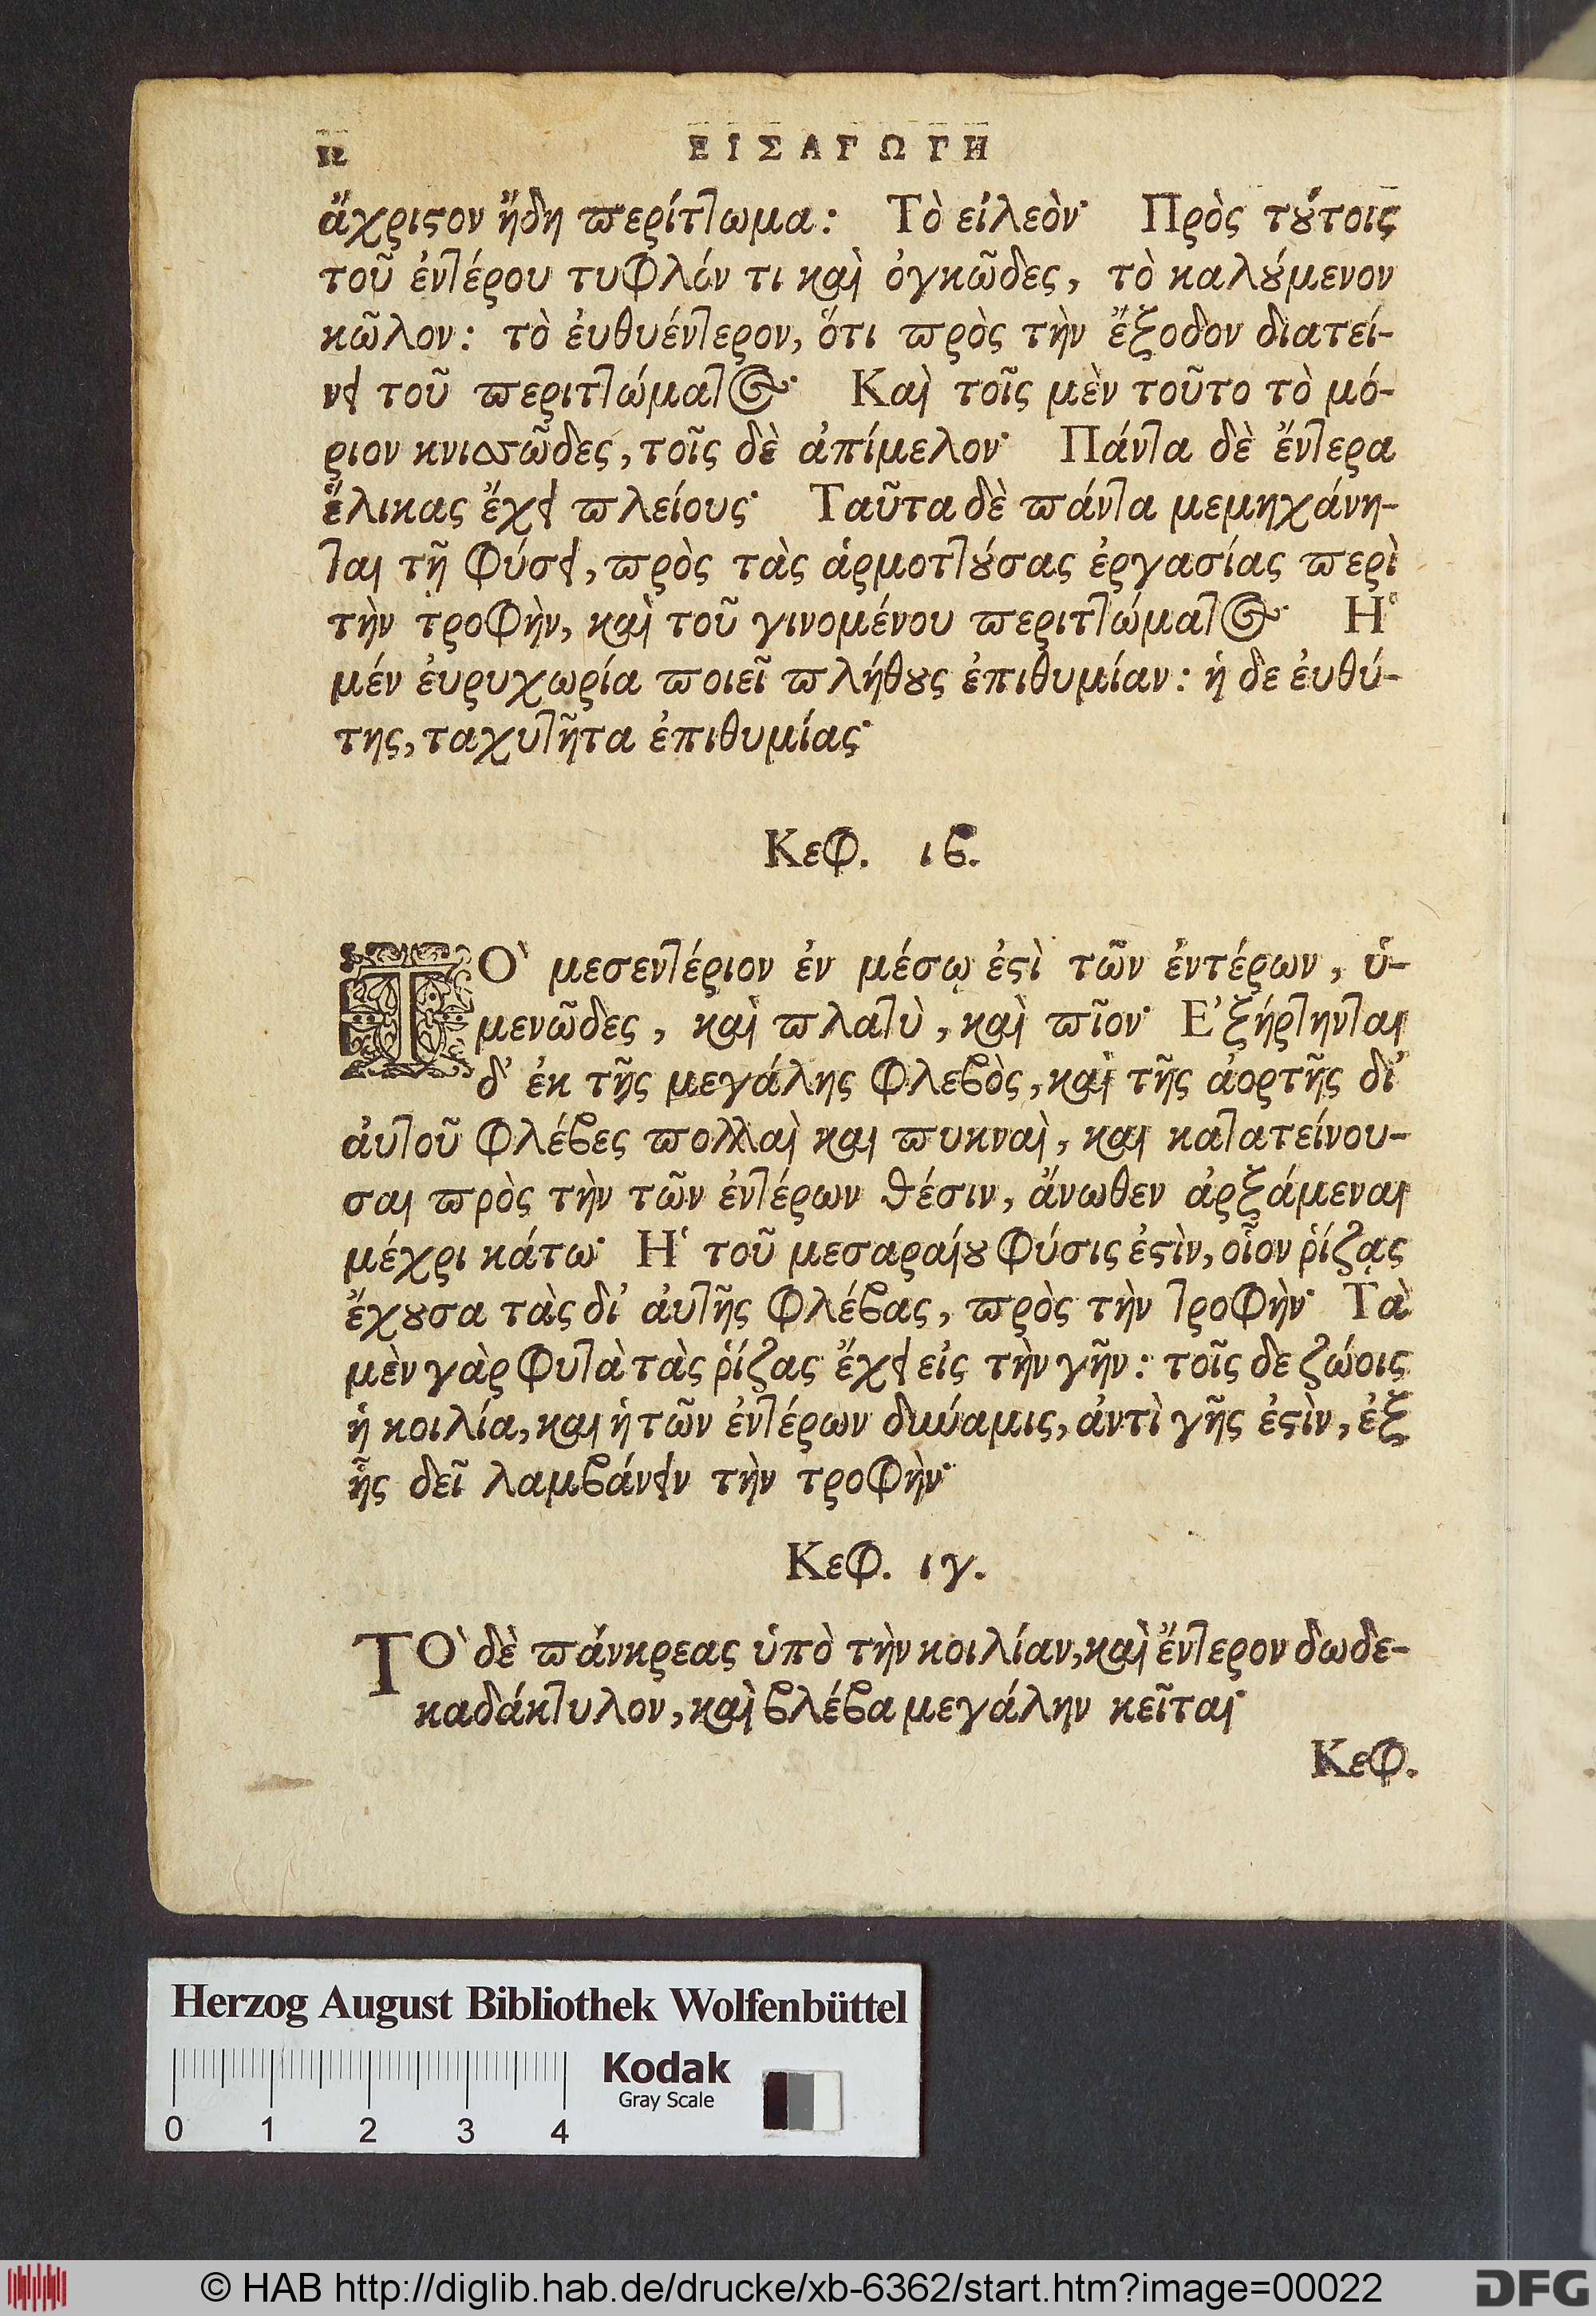 12 ΕΙΣΑΓΩΓΗ
ἄχριϛον ἤδη περίττωμα: Τὸ εἰλεὸν· Πρὸς τȣ́τοις
τοῦ ἐντέρου τυφλόν τι καὶ ὀγκῶδες, τὸ καλȣ́μενον
κῶλον: τὸ ἐυθυέντερον, ὅτι πρὸς τὴν ἔξοδον διατεί-
νει τοῦ περιττώματος· Καὶ τοῖς μὲν τοῦτο τὸ μό-
ριον κνισσῶδες, τοῖς δὲ ἀπίμελον· Πάντα δὲ ἔντερα
ἕλικας ἔχει πλείους· Ταῦτα δὲ πάντα μεμηχάνη-
ται τῇ φύσει, πρὸς τὰς ἁρμοττȣ́σας ἐργασίας περὶ
τὴν τροφὴν, καὶ τοῦ γινομένου περιττώματος· Ἡ
μέν ἐυρυχωρία ποιεῖ πλήθȣς ἐπιθυμίαν: ἡ δε ἐυθύ-
της, ταχυτῆτα ἐπιθυμίας·
Κεφ. ιϐ.
ΤΟ῾ μεσεντέριον ἐν μέσῳ ἐϛὶ τῶν ἐντέρων, ὑ-
μενῶδες, καὶ πλατὺ, καὶ πῖον· Ἐξήρτηνται
δ' ἐκ τῆς μεγάλης φλεϐὸς, καὶ τῆς ἀορτῆς δι'
ἀυτοῦ φλέϐες πολλαὶ και πυκναὶ, και κατατείνου-
σαι πρὸς τὴν τῶν ἐντέρων θέσιν, ἄνωθεν ἀρξάμεναι
μέχρι κάτω· Ἡ τοῦ μεσαραίȣ φύσις ἐϛὶν, οἷον ῥίζας
ἔχȣσα τὰς δι' ἀυτῆς φλέϐας, πρὸς τὴν τροφὴν· Τὰ
μὲν γὰρ φυτὰ τὰς ῥίζας ἔχει εἰς τὴν γῆν: τοῖς δε ζώοις
ἡ κοιλία, και ἡ τῶν ἐντέρων δύναμις, ἀντὶ γῆς ἐϛὶν, ἐξ
ἧς δεῖ λαμϐάνειν τὴν τροφὴν·
Κεφ. ιγ.
ΤΟ῾ δὲ πάνκρεας ὑπὸ τὴν κοιλίαν, καὶ ἔντερον δωδε-
καδάκτυλον, καὶ ϐλέϐα μεγάλην κεῖται·
Κεφ.
Herzog August Bibliothek Wolfenbüttel
Kodak
Gray Scale
0 1 2 3 4
© HAB http://diglib.hab.de/drucke/xb-6362/start.htm?image=00022 DFG